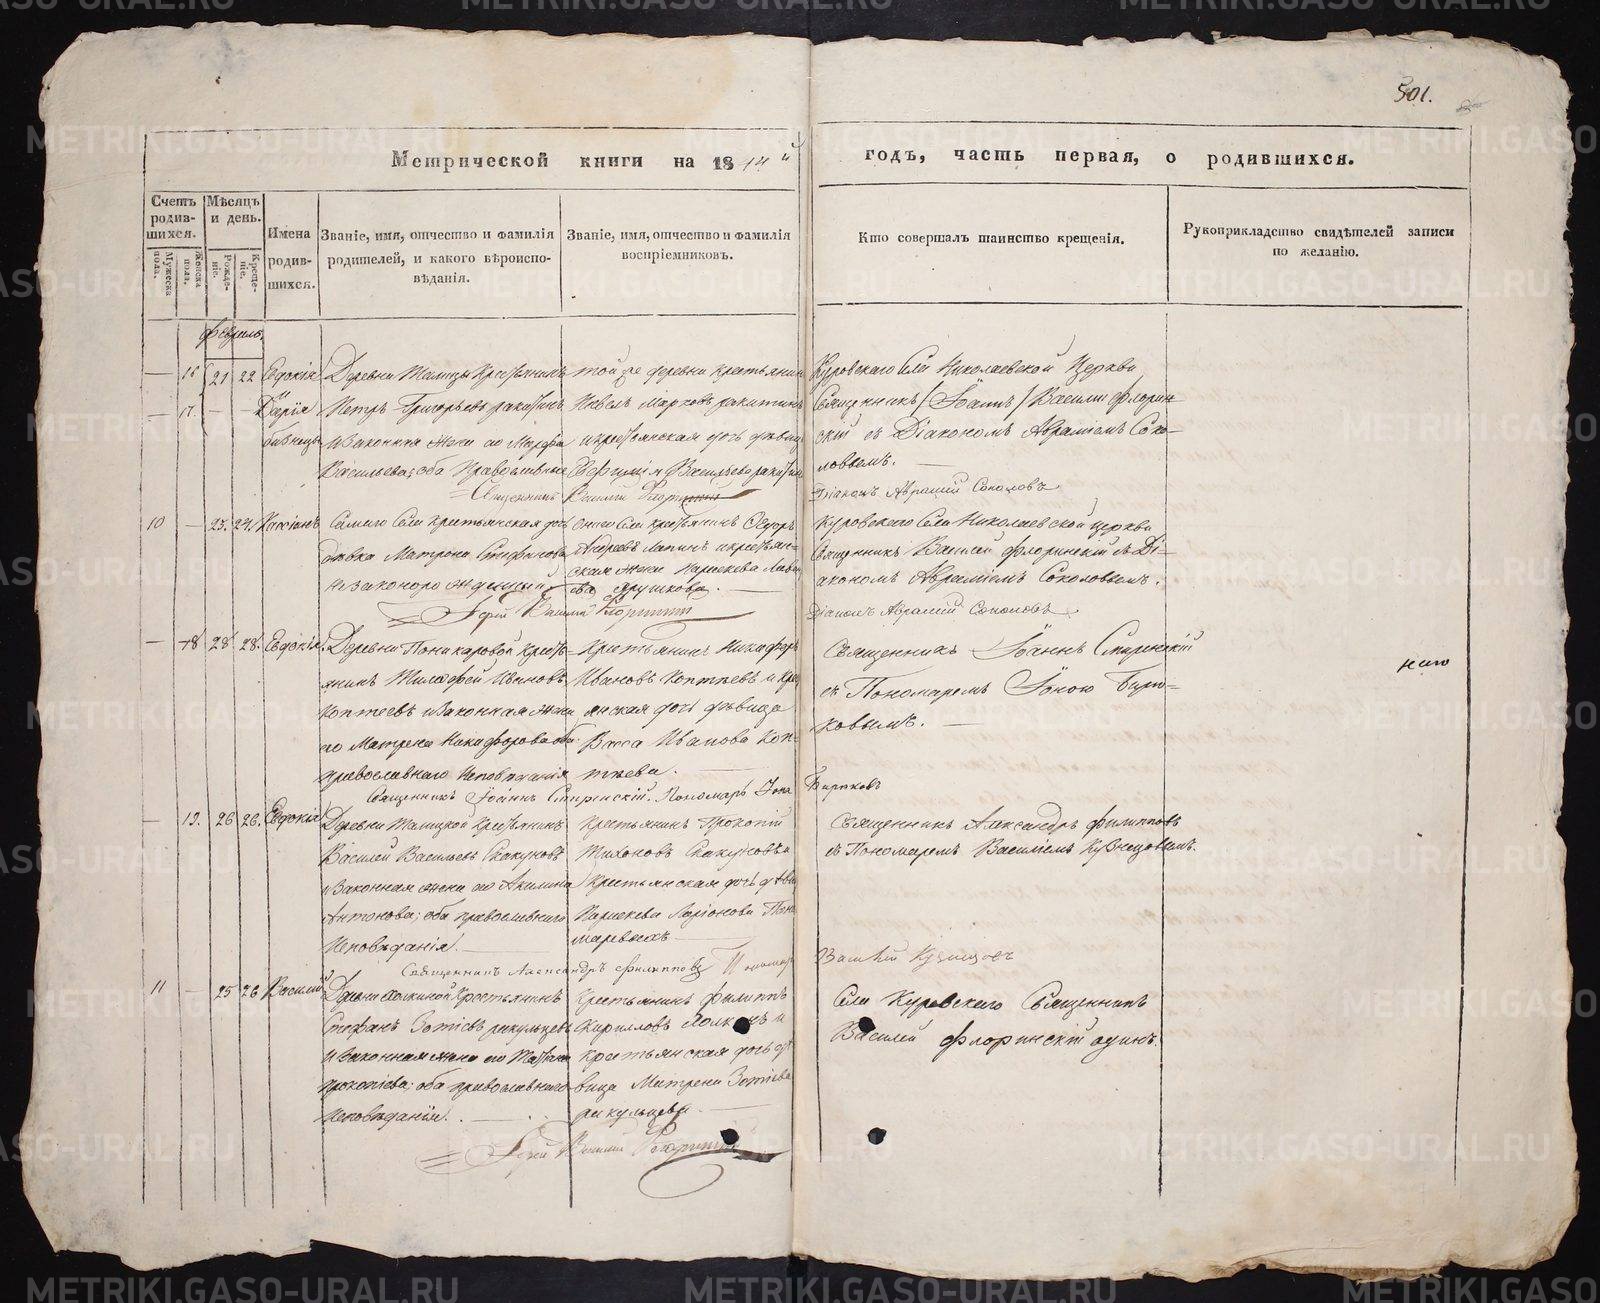 501.
Метрической книги на 1814й годъ, часть первая, о родившихся.
Счетъ родив-шихся.
Мужеска пола.
Женска пола.
Мѣсяцъ и день.
Рожде-ніе.
Креще-ніе.
Имена родив-шихся.
Званіе, имя, отчество и фамилія родителей, и какого вѣроиспо-вѣданія.
Званіе, имя, отчество и фамилія воспріемниковъ.
Кто совершалъ таинство крещенія.
Рукоприкладство свидѣтелей записи по желанію.
февраль.
— 16 21 22 Евдокія
— 17. — — Дарія
близнецы
Деревни Талицы Крестьянинъ
Петръ Григорьевъ ракитинъ
и Законная жена его Марфа
Васильева; оба Православные
той же деревни крестьянинъ
Павелъ Марковъ ракитинъ
и крестьянская дочь девица
Евфимія Васильева ракитин
Куровскаго Села Николаевской Церкви
Священникъ /Іоаннъ/ Василій флорин-
скій съ Діакономъ Авраміемъ Соко-
ловымъ.
Священникъ Василій Флоринскій
Діаконъ Аврамій Соколовъ
10 — 23. 24. Кассіанъ
Самаго Села крестьянская дочь
девка Матрона Стефанова
незаконорожденный
Онаго Села крестьянинъ Ѳедоръ
Андреевъ Лапинъ и крестьян-
ская жена Параскева
Ярушкова.
Куровскаго Села Николаевской церкви
Священникъ Василій флоринскій съ Ді-
акономъ Авраміемъ Соколовымъ.
Іерей Василій Флоринскій
Діаконъ Аврамій Соколовъ
— 18 28 28. Евдокія.
Деревни Поникаровой Крестъ-
янинъ Тимофей Ивановъ
Коптеевъ и Законная жена
его Матрена Никифорова оба
православнаго Исповѣданія
Крестьянинъ Никифоръ
Ивановъ Коптевъ и крес
янская дочь дѣвица
Васса Иванова Коп-
тѣева.
Священникъ Іоаннъ Смиренскій
съ Пономаремъ Іоною Бирю-
ковымъ.
Священникъ Іоаннъ Смиренскій. Пономарь Іона Бирюковъ
— 19. 26 26. Евдокія
Деревни Талицкой Крестьянинъ
Василей Васильевъ Скакуновъ
и Законная жена его Акилина
Антонова; оба православнаго
Исповѣданія.
Крестьянинъ Прокопій
Тихоновъ Скакуновъ и
Крестьянская дочь дѣви
Параскева Ларіонова Поно
маревыхъ
Священникъ Александръ филипповъ
съ Пономаремъ Василіемъ Кузнецовымъ.
Священникъ Александръ филипповъ Пономарь Василій Кузнецовъ
11 — 25 26 Василій
Деревни Холкиной Крестьянинъ
Стефанъ Зотіевъ ракульцевъ
и Законная жена его Татіана
прокопіева; оба православнаго
Исповѣданія.
Крестьянинъ филиппъ
Кирилловъ Холкинъ и
крестьянская дочь дѣ
вица Матрена Зотіева
ракульцева.
Села Куровскаго Священникъ
Василей флоринскій одинъ.
Іерей Василій Флоринскій
METRIKI.GASO-URAL.RU